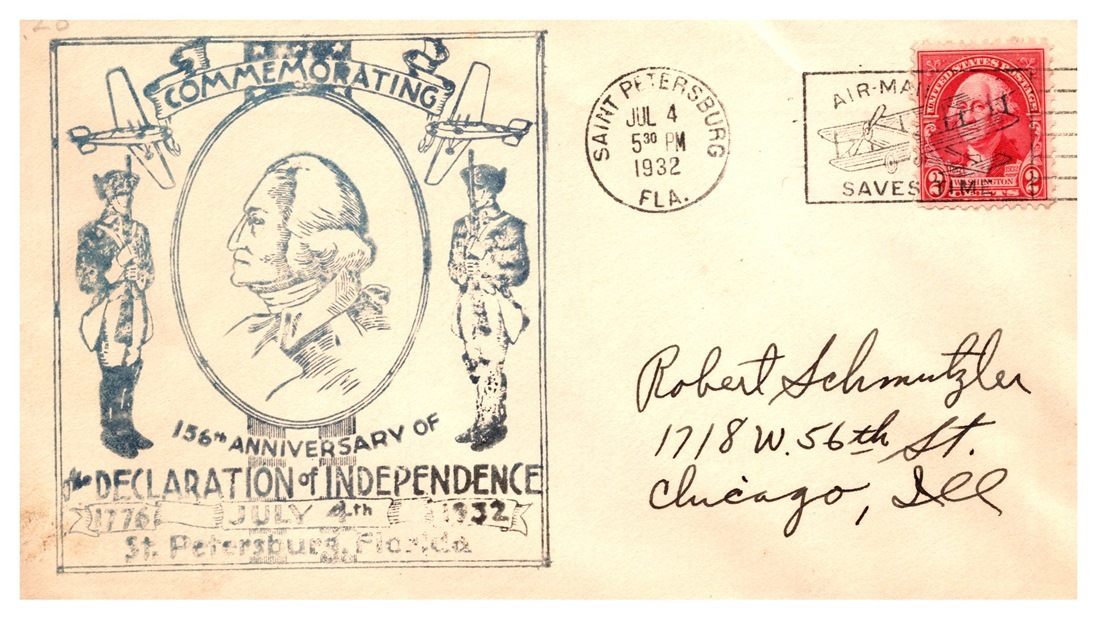 20
COMMEMORATING
156th ANNIVERSARY OF
the DECLARATION of INDEPENDENCE
1776 JULY 4th 1932
St. Petersburg, Florida
SAINT PETERSBURG
JUL 4
5 30 PM
1932
FLA.
AIR-MAIL
SAVES TIME
UNITED STATES POSTAGE
WASHINGTON
2 CENTS 2
Robert Schmutzler
1718 W. 56th St.
Chicago, Ill